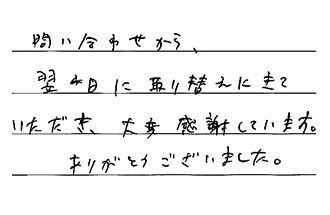 問い合わせから、
翌日に取り替えに来て
いただき、大変感謝しています。
ありがとうございました。